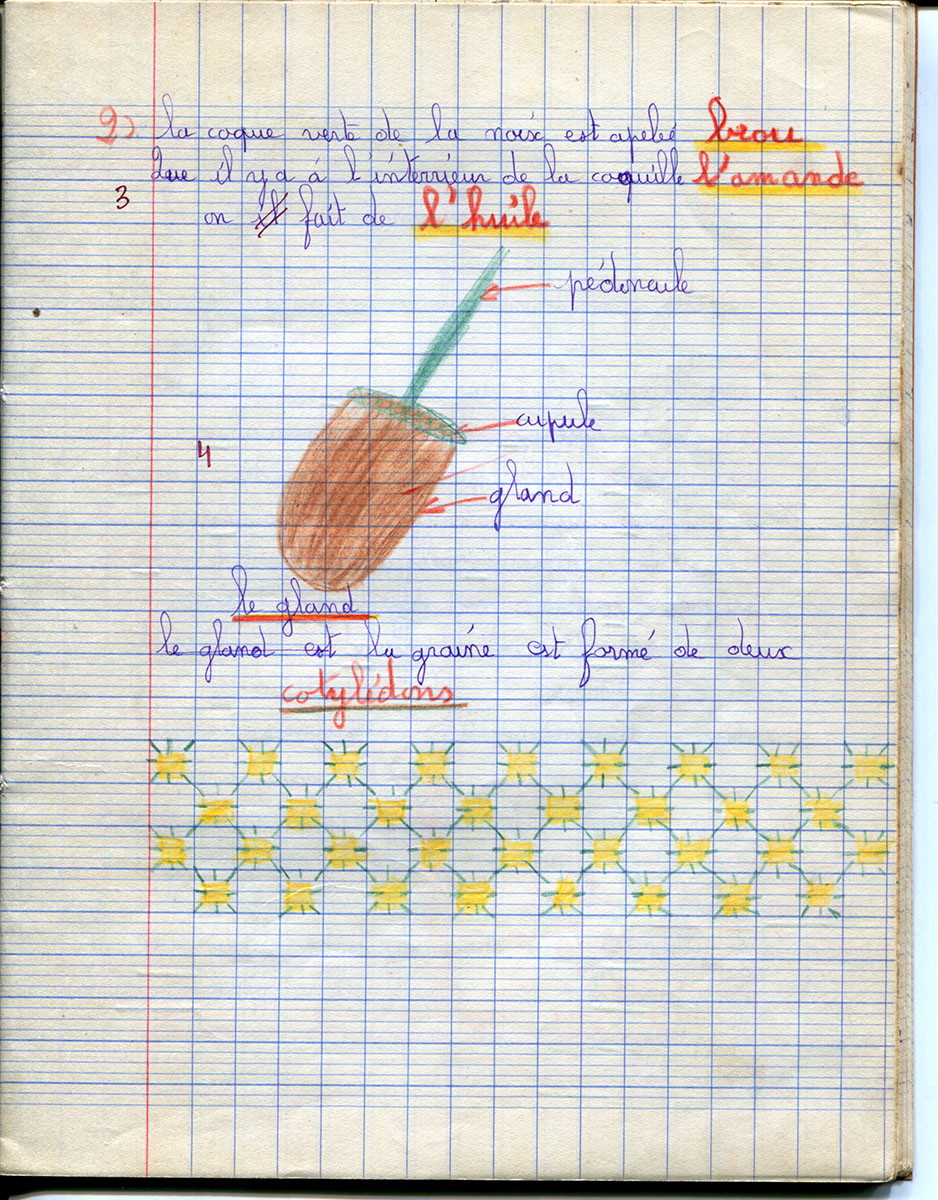 2) la coque verte de la noix est apelée brou
Que il y a á l'intérieur de la coquille l'amande
3
on il fait de l'huile
pédoncule
cupule
4
gland
le gland
le gland est la graine est formé de deux
cotylédons